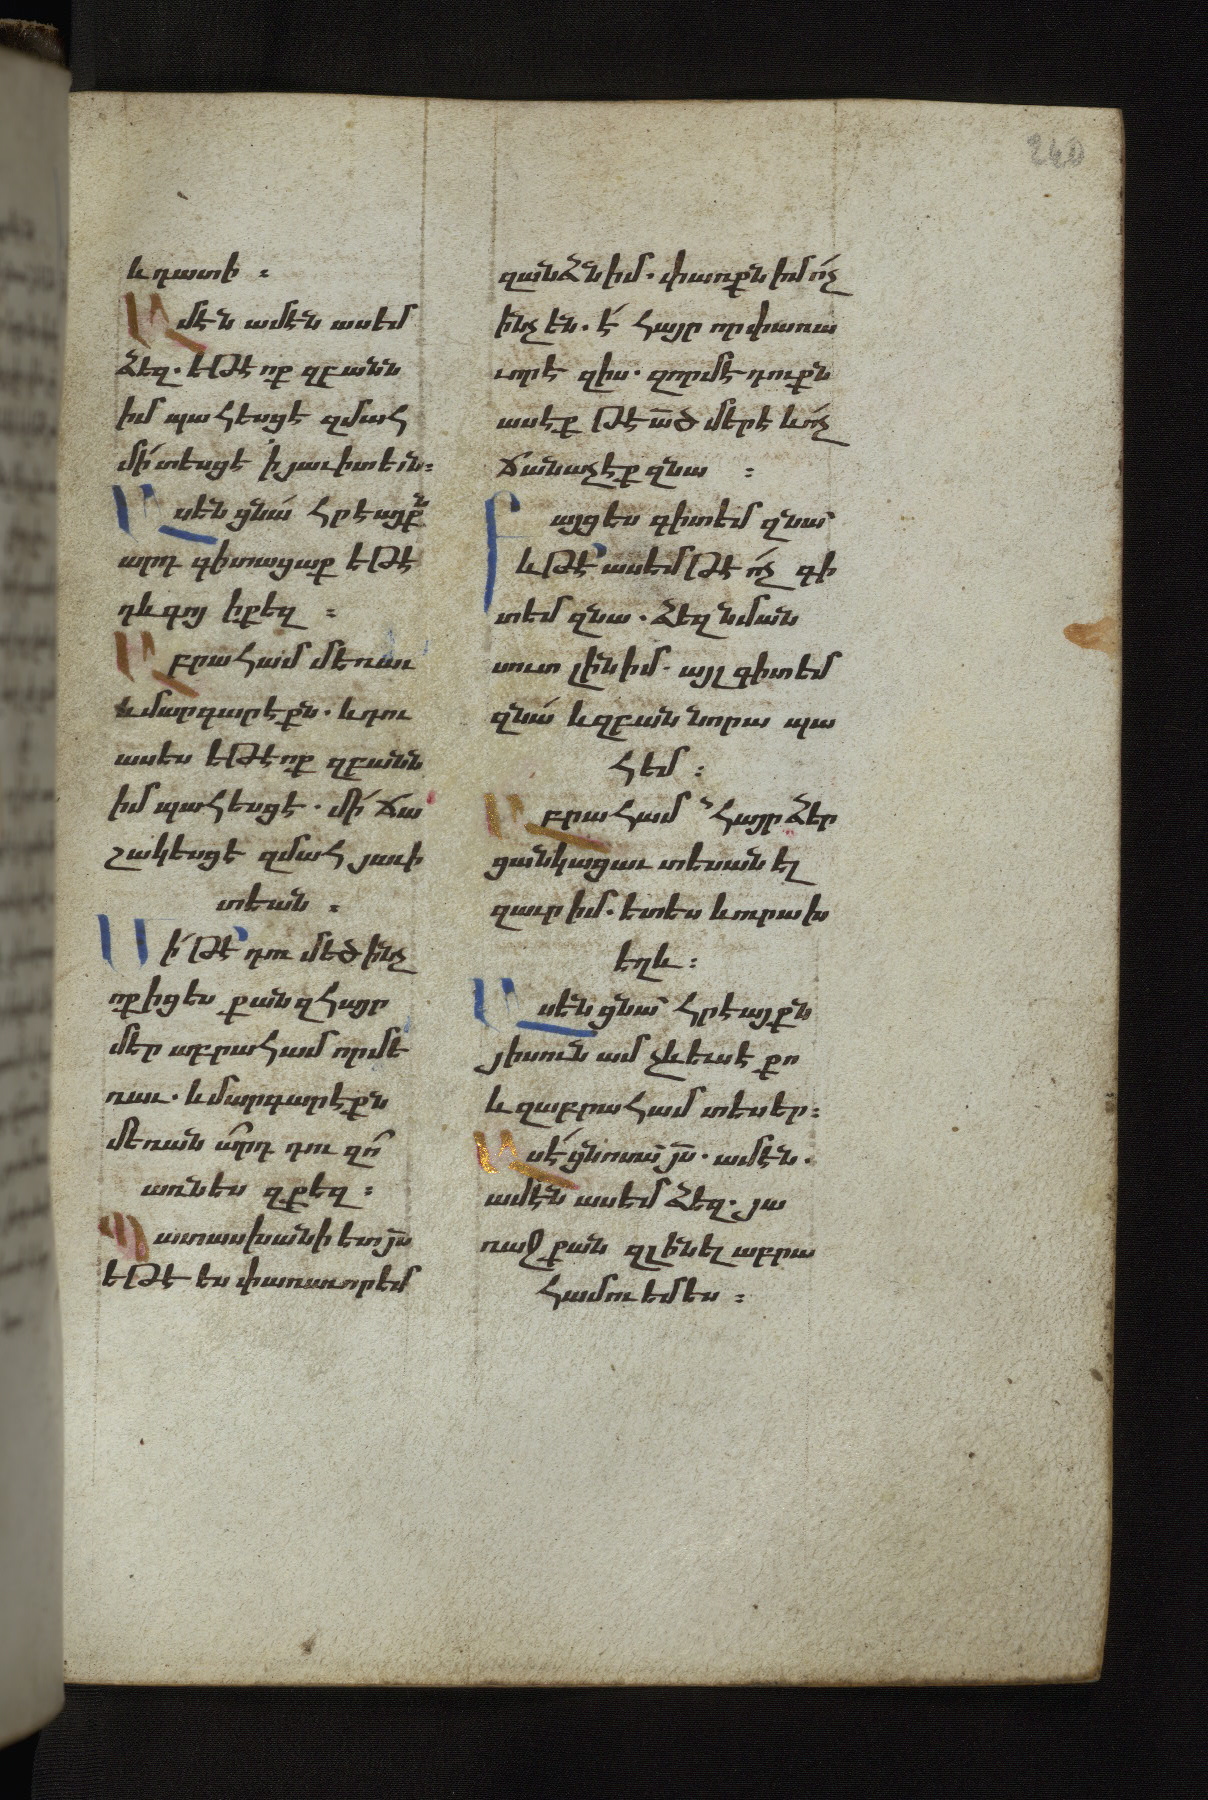 240
և դատի ։
Ամէն ամէն ասեմ
ձեզ. եթէ ոք զբանն
իմ պահեսցէ զմահ
մի՛ տեսցէ ի յաւիտեն։
Ասեն ցնա՛ հրէայքն
արդ գիտացաք եթէ
դև գոյ ի քեզ ։
Աբրահամ մեռաւ
և մարգարէքն. և դու
ասես եթէ ոք զբանն
իմ պահեսցէ. մի՛ ճա
շակեսցէ զմահ յաւի
տեան ։
Մի՛ թէ՞ դու մեծ ինչ
ոք իցես քան զհայր
մեր աբրահամ որ մե
ռաւ. և մարգարէքն
մեռան ա՞րդ դու զո՞
առնես զքեզ ։
Պատասխանի ետ յս
եթէ ես փառաւորեմ
զանձն իմ. փառքն իմ ո՛չ
ինչ են. է՛ հայր որ փառա
ւորէ զիս. զորմէ դուքն
ասէք թէ ած մեր է և ո՛չ
ճանաչէք զնա ։
Բայց ես գիտեմ զնա՛
և թէ՞ ասեմ թէ ո՛չ գի
տեմ զնա. ձեզ նման
սուտ լինիմ. այլ գիտեմ
զնա՛ և զբան նորա պա
հեմ ։
Աբրահամ հայր ձեր
ցանկացաւ տեսանել
զաւր իմ. ետես և ուրախ
եղև ։
Ասեն ցնա՛ հրէայքն
յիսուն ամ չև ևս է քո
և զաբրահամ տեսեր ։
Ասէ՛ ցնոսա յս. ամէն.
ամէն ասեմ ձեզ. յա
ռաջ քան զլինել աբրա
համու եմ ես ։